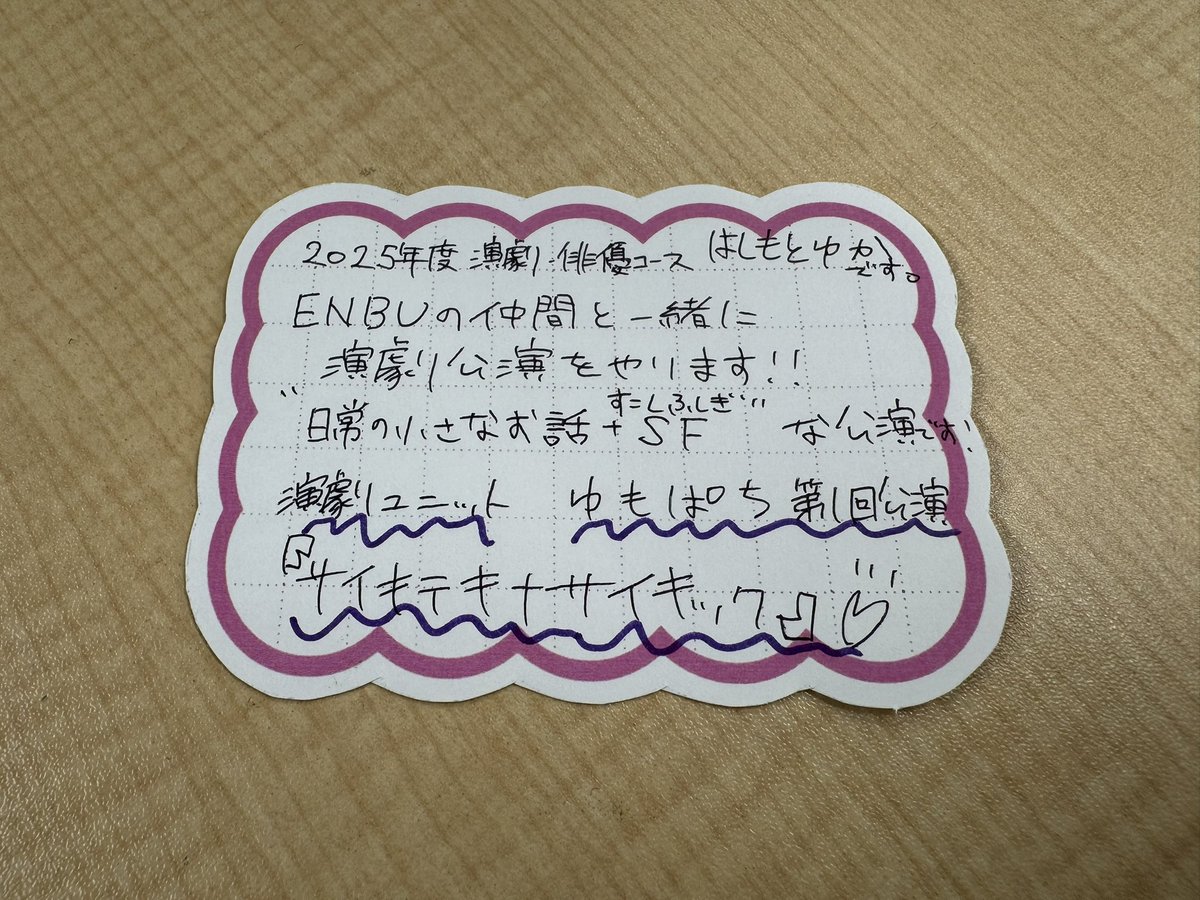 2025年度 演劇 俳優コース はしもとゆかです。
ENBUの仲間と一緒に
演劇公演をやります!!
すこしふしぎ
"日常の小さなお話+SF" な公演です!
演劇ユニット ゆもぱち 第1回公演
『サイキテキナサイキック』